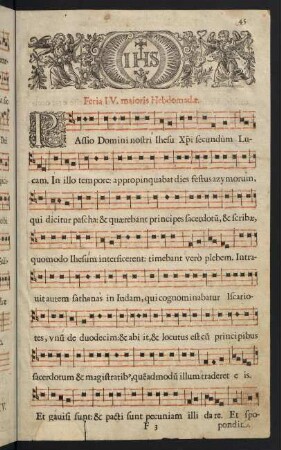 45
IHS
Feria IV. maioris Hebdomadæ.
PAssio Domini nostri Ihesu Xp̄i secundum Lu-
cam. In illo tempore: appropinquabat dies festus azymorum,
qui dicitur paschæ: & quærebant principes sacerdotū, & scribæ,
quomodo Ihesum interficerent: timebant verò plebem. Intra-
uit autem sathanas in Iudam, qui cognominabatur Iscario-
tes, vnū de duodecim: & abiit, & locutus est cū principibus
sacerdotum & magistratibꝰ, quēadmodū illum traderet eis.
Et gauisi sunt: & pacti sunt pecuniam illi dare. Et spo-
F 3 pondit.